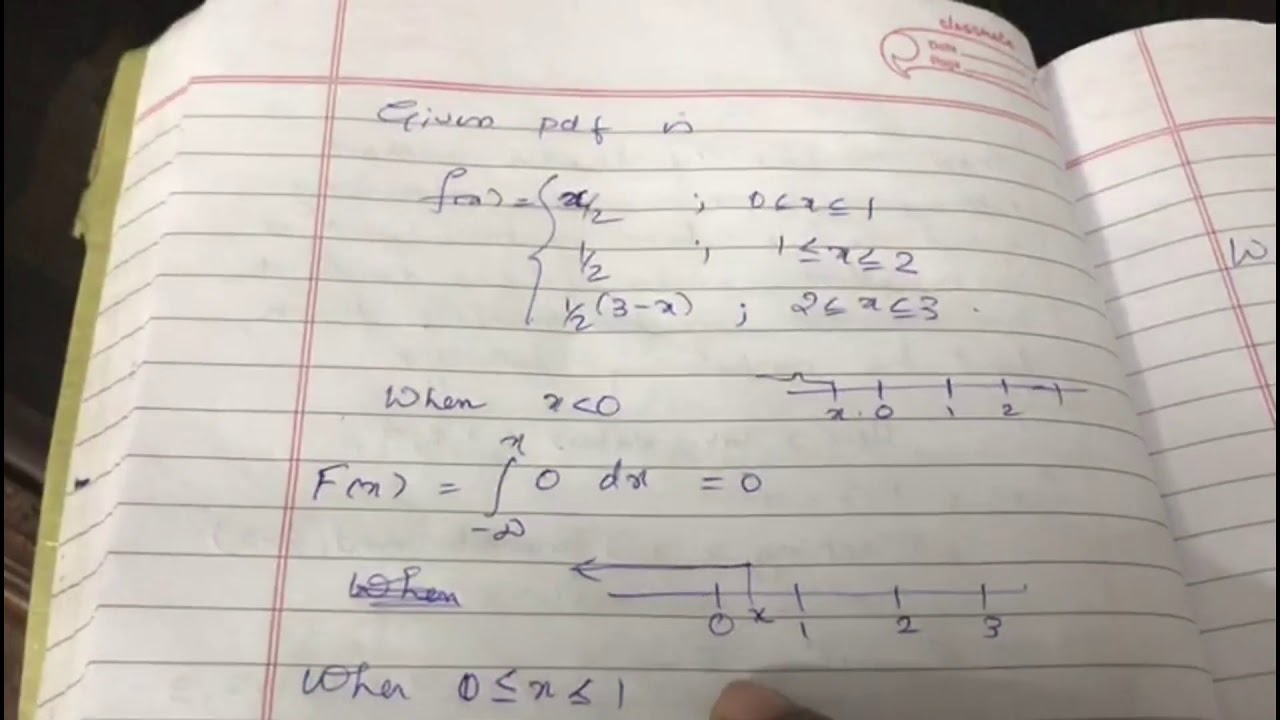 classmate
Date
Page
Given pdf is
f(x) = { x/2 ; 0 ≤ x ≤ 1
1/2 ; 1 ≤ x ≤ 2
1/2 (3-x) ; 2 ≤ x ≤ 3 .
When x<0
x . 0 1 2
F(x) = ∫_{-∞}^{x} 0 dx = 0
When
0 x 1 2 3
When 0 ≤ x ≤ 1
W